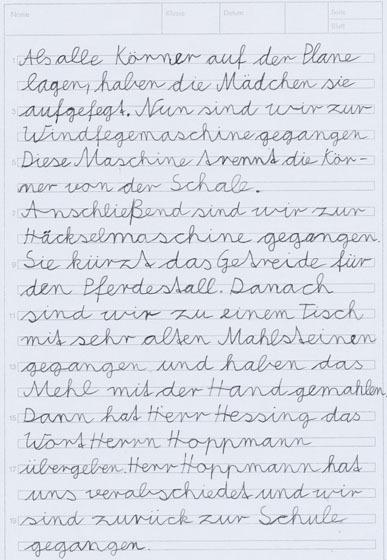 Name Klasse Datum Seite
Blatt
1 Als alle Körner auf der Plane
lagen, haben die Mädchen sie
3 aufgefegt. Nun sind wir zur
Windfegemaschine gegangen
5 Diese Maschine trennt die Kör-
ner von der Schale.
7 Anschließend sind wir zur
Häckselmaschine gegangen.
9 Sie kürzt das Getreide für
den Pferdestall. Danach
11 sind wir zu einem Tisch
mit sehr alten Mahlsteinen
13 gegangen und haben das
Mehl mit der Hand gemahlen.
15 Dann hat Herr Hessing das
Wort Herrn Hoppmann
17 übergeben. Herr Hoppmann hat
uns verabschiedet und wir
19 sind zurück zur Schule
gegangen.